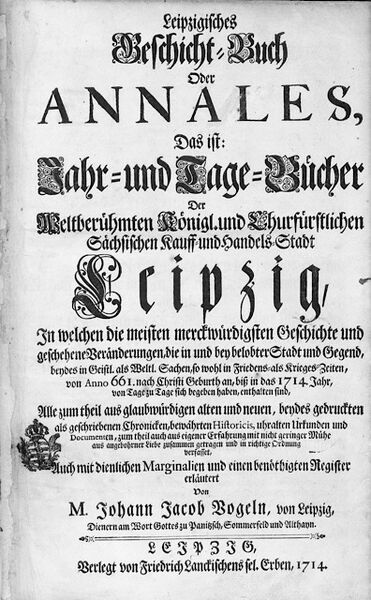 Leipzigisches
Geschicht-Buch
Oder
ANNALES,
Das ist:
Jahr- und Tage-Bücher
Der
Weltberühmten Königl. und Churfürstlichen
Sächsischen Kauff- und Handels-Stadt
Leipzig,
In welchen die meisten merckwürdigsten Geschichte und
geschehene Veränderungen, die in und bey belobter Stadt und Gegend,
beydes in Geistl. als Weltl. Sachen, so wohl in Friedens- als Krieges-Zeiten,
von Anno 661. nach Christi Geburth an, biß in das 1714. Jahr,
von Tage zu Tage sich begeben haben, enthalten sind,
Alle zum theil aus glaubwürdigen alten und neuen, beydes gedruckten
als geschriebenen Chronicken, bewährten Historicis, uhralten Urkunden und
Documenten, zum theil auch aus eigener Erfahrung mit nicht geringer Mühe
aus angebohrner Liebe zusammen getragen und in richtige Ordnung
verfasset,
Auch mit dienlichen Marginalien und einen benöthigten Register
erläutert
Von
M. Johann Jacob Vogeln, von Leipzig,
Dienern am Wort Gottes zu Panitzsch, Sommerfeld und Althayn.
LEIPZIG,
Verlegt von Friedrich Lanckischens sel. Erben, 1714.